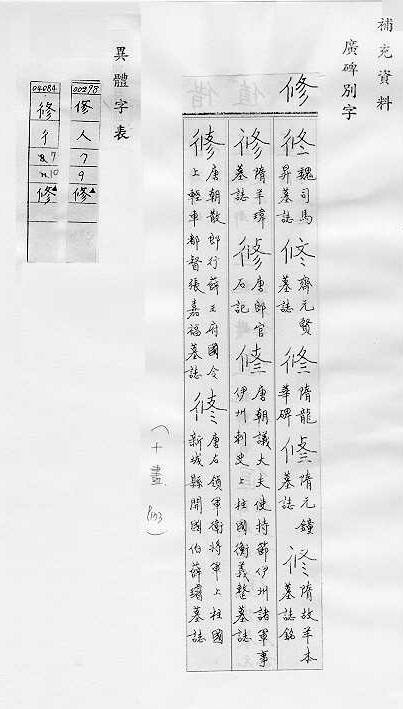 補充資料
廣碑別字
修
魏司馬昇墓誌
齊元賢墓誌
隋龍華碑
隋元鐘墓誌
隋故羊本墓誌銘
隋羊瑋墓誌
唐郎官石記
唐朝議大夫使持節伊州諸軍事伊州刺史上柱國衡義整墓誌
唐朝散郎行薛王府國令上輕車都督張嘉福墓誌
唐右領軍衛將軍上柱國新城縣開國伯薛璿墓誌
(十畫)
異體字表
00298
人
7
9
修▲
04084
彳
7
10
修▲